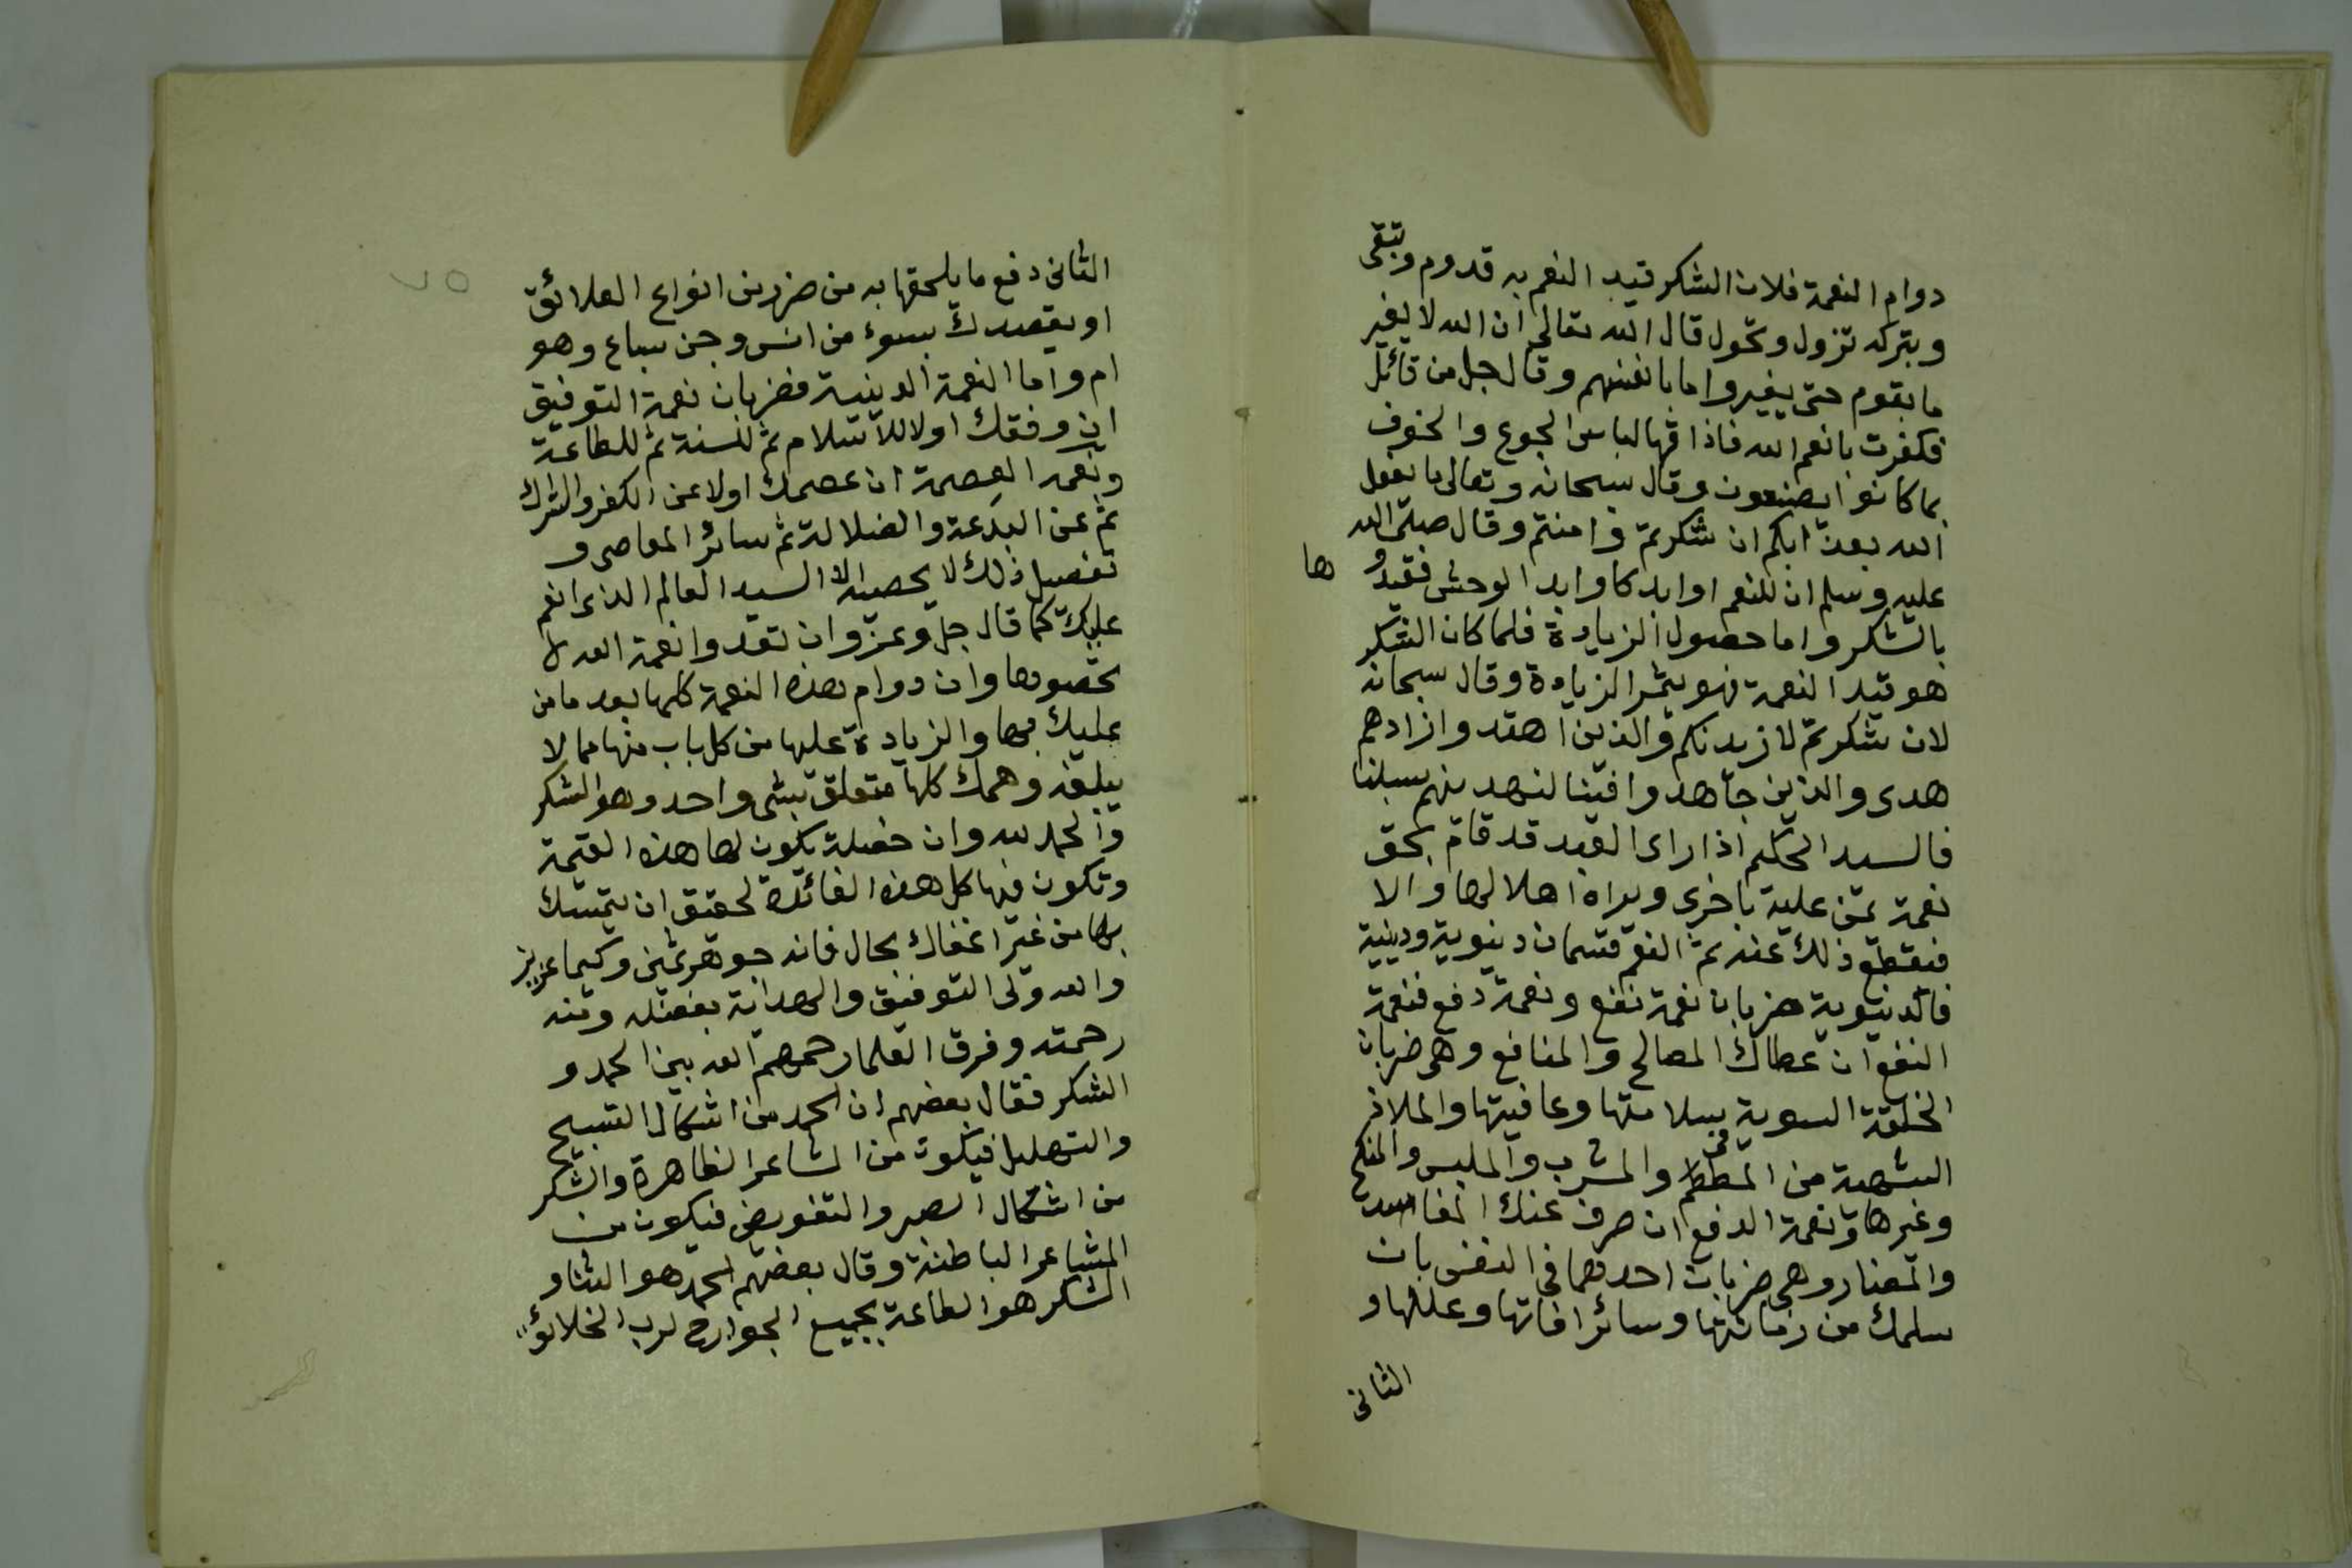 دوام النعمة فلان الشكر قيد النعم به قدوم وتبقى
وبتركه تزول وتحول قال الله تعالى ان الله لا يغير
ما بقوم حتى يغيروا ما بانفسهم وقال جل من قائل
فكفرت بانعم الله فاذاقها لباس الجوع والخوف
بما كانوا يصنعون وقال سبحانه وتعالى ما يفعل
الله بعذابكم ان شكرتم وامنتم وقال صلى الله
عليه وسلم ان للنعم اوابد كاوابد الوحش فقيدو ها
بالشكر واما حصول الزيادة فلما كان الشكر
هو قيد النعمة فهو يثمر الزيادة وقال سبحانه
لان شكرتم لازيدنكم والذين اهتدوا زادهم
هدى والذين جاهدوا فينا لنهدينهم سبلنا
فالسيد الحكيم اذا راى العبد قد قام بحق
نعمة يمن عليه باخرى ويراه اهلا لها والا
فيقطع ذلك عنه ثم النعم قسمان دنيوية ودينية
فالدنيوية ضربان نعمة نفع ونعمة دفع فنعمة
النفع ان عطاك المصالح والمنافع وهى ضربان
الخلقة السوية بسلامتها وعافيتها والملاذ
الشهية من المطعم والمشرب والملبس والمنكح
وغيرها ونعمة الدفع ان صرف عنك المفاسد
والمضار وهى ضربان احدهما فى النفس بان
سلمك من زمانتها وسائر افاتها وعللها و
الثانى
٧٥
الثانى دفع ما يلحقها به من ضرر من انواع العلائق
او يقصدك بسوء من انس وجن سباع وهو
ام واما النعمة الدينية فضربان نعمة التوفيق
ان وفقك اولا للاسلام ثم للسنة ثم للطاعة
ونعمة العصمة ان عصمك اولا عن الكفر والشرك
ثم عن البدعة والضلالة ثم سائر المعاصى و
تفصيل ذلك لا يحصيه الا السيد العالم الذى انعم
عليك كما قال جل وعز وان تعدوا نعمة الله لا
تحصوها وان دوام هذه النعمة كلها بعد ما من
عليك بها والزيادة عليها من كل باب منها مما لا
يبلغه وهمك كلها متعلق بشى واحد وهو الشكر
والحمد لله وان خصلة تكون لها هذه القيمة
وتكون فيها كل هذه الفائدة لحقيق ان يتمسك
بها من غير اغفال بحال فانه جوهر ثمين وكيميا عزيز
والله ولى التوفيق والهداية بفضله ومنه
رحمته وفرق العلما رحمهم الله بين الحمد و
الشكر فقال بعضهم ان الحمد من اشكال التسبيح
والتهليل فيكون من المشاعر الظاهرة والشكر
من اشكال الصبر والتفويض فيكون من
المشاعر الباطنة وقال بعضهم الحمد هو الثنا و
الشكر هو الطاعة بجميع الجوارح لرب الخلائق